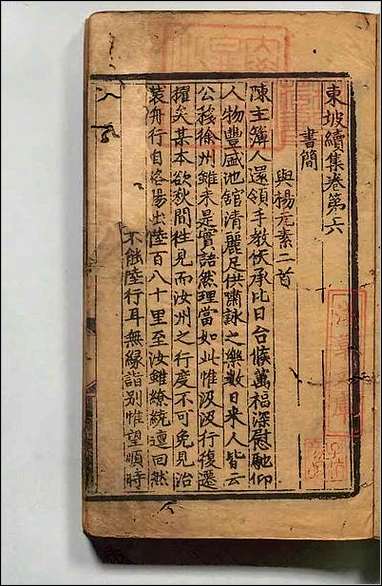 東坡續集卷第六
書簡
與楊元素二首
陳主簿人還領手教伏承比日台候萬福深慰馳仰
人物豐盛池館清麗足供嘯詠之樂數日來人皆云
公移徐州雖未是實語然理當如此惟汲汲行復遷
擢矣某本欲秋間往見而汝州之行度不可免見治
裝舟行自洛陸百八十里至汝雖繚繞還回然
不能陸行耳無緣詣別惟望順時